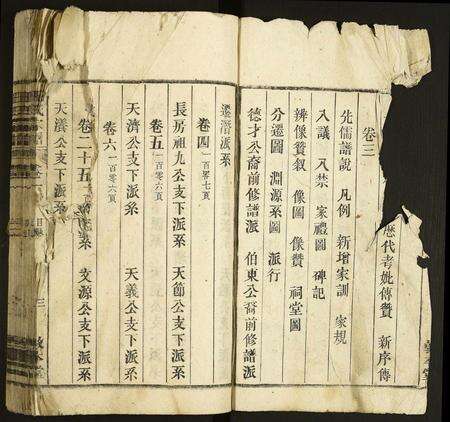 歷代考妣傳贊 新序傳
卷三
先儒譜說 凡例 新增家訓 家規
入議 入禁 家禮圖 碑記
辨像贊叙 像圖 像贊 祠堂圖
分遷圖 淵源系圖 派行
德才公裔前修譜派 伯東公裔前修譜派
遷潛派系
卷四 一百零七頁
長房祖九公支下派系 天節公支下派系
卷五 一百零六頁
天濟公支下派系 天義公支下派系
卷六 一百零六頁
系 文源公支下派系
天濟公支下派系
目
三
敦本堂